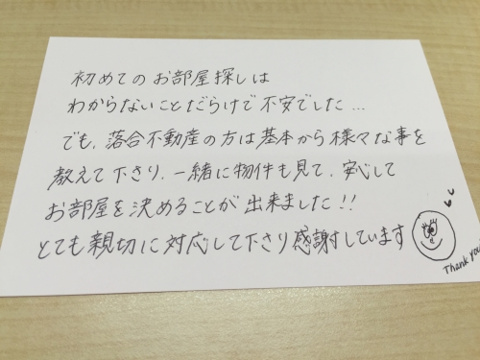 初めてのお部屋探しは
わからないことだらけで不安でした…
でも、落合不動産の方は基本から様々な事を
教えて下さり、一緒に物件も見て、安心して
お部屋を決めることが出来ました!!
とても親切に対応して下さり感謝しています
Thank you!